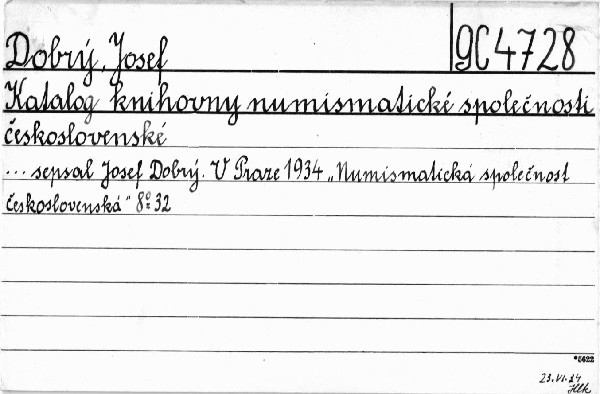 Dobrý, Josef
9C4728
Katalog knihovny numismatické společnosti
československé
... sepsal Josef Dobrý. V Praze 1934 „Numismatická společnost
československá" 8º 32
*5622